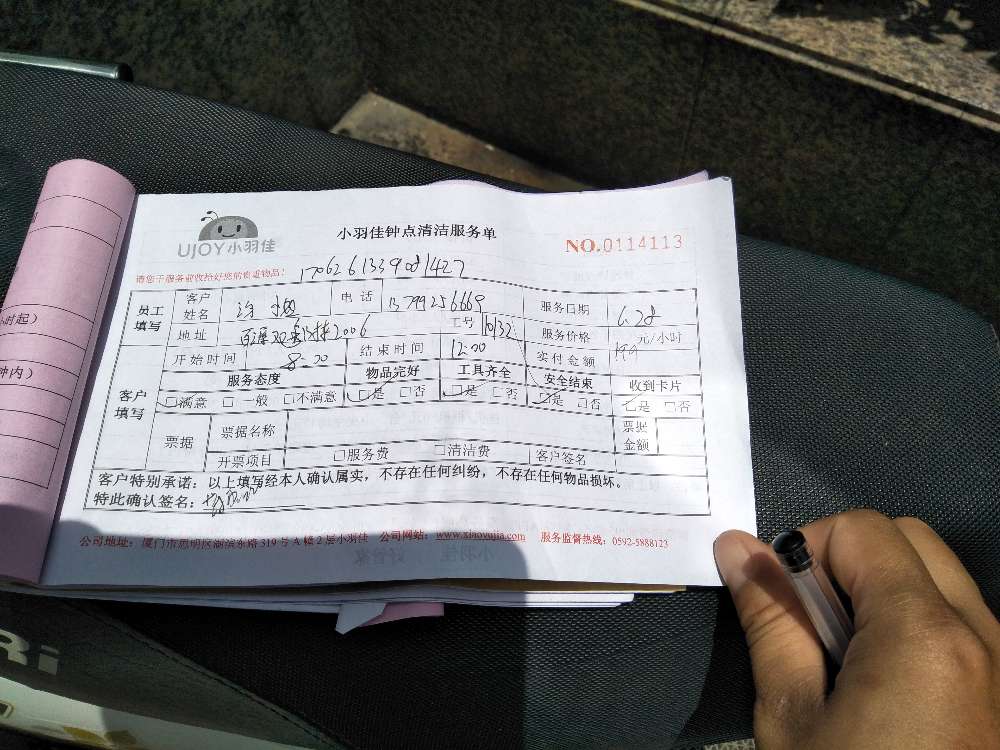 UJOY小羽佳
小羽佳钟点清洁服务单
NO.0114113
请您于服务前收拾好您的贵重物品!
1706261339081427
员工填写 客户姓名 电话 13799256669 服务日期 6.28
地址 2006 工号 10132 服务价格 元/小时
开始时间 8:00 结束时间 12:00 实付金额 199
客户填写 服务态度 物品完好 工具齐全 安全结束 收到卡片
□满意 □一般 □不满意 □是 □否 □是 □否 □是 □否 □是 □否
票据 票据名称 票据金额
开票项目 □服务费 □清洁费 客户签名
客户特别承诺:以上填写经本人确认属实,不存在任何纠纷,不存在任何物品损坏。
特此确认签名:
公司地址:厦门市思明区湖滨东路319号A幢2层小羽佳 公司网站:www.xiaoyujia.com 服务监督热线:0592-5888123
时起)
钟内)
Ri